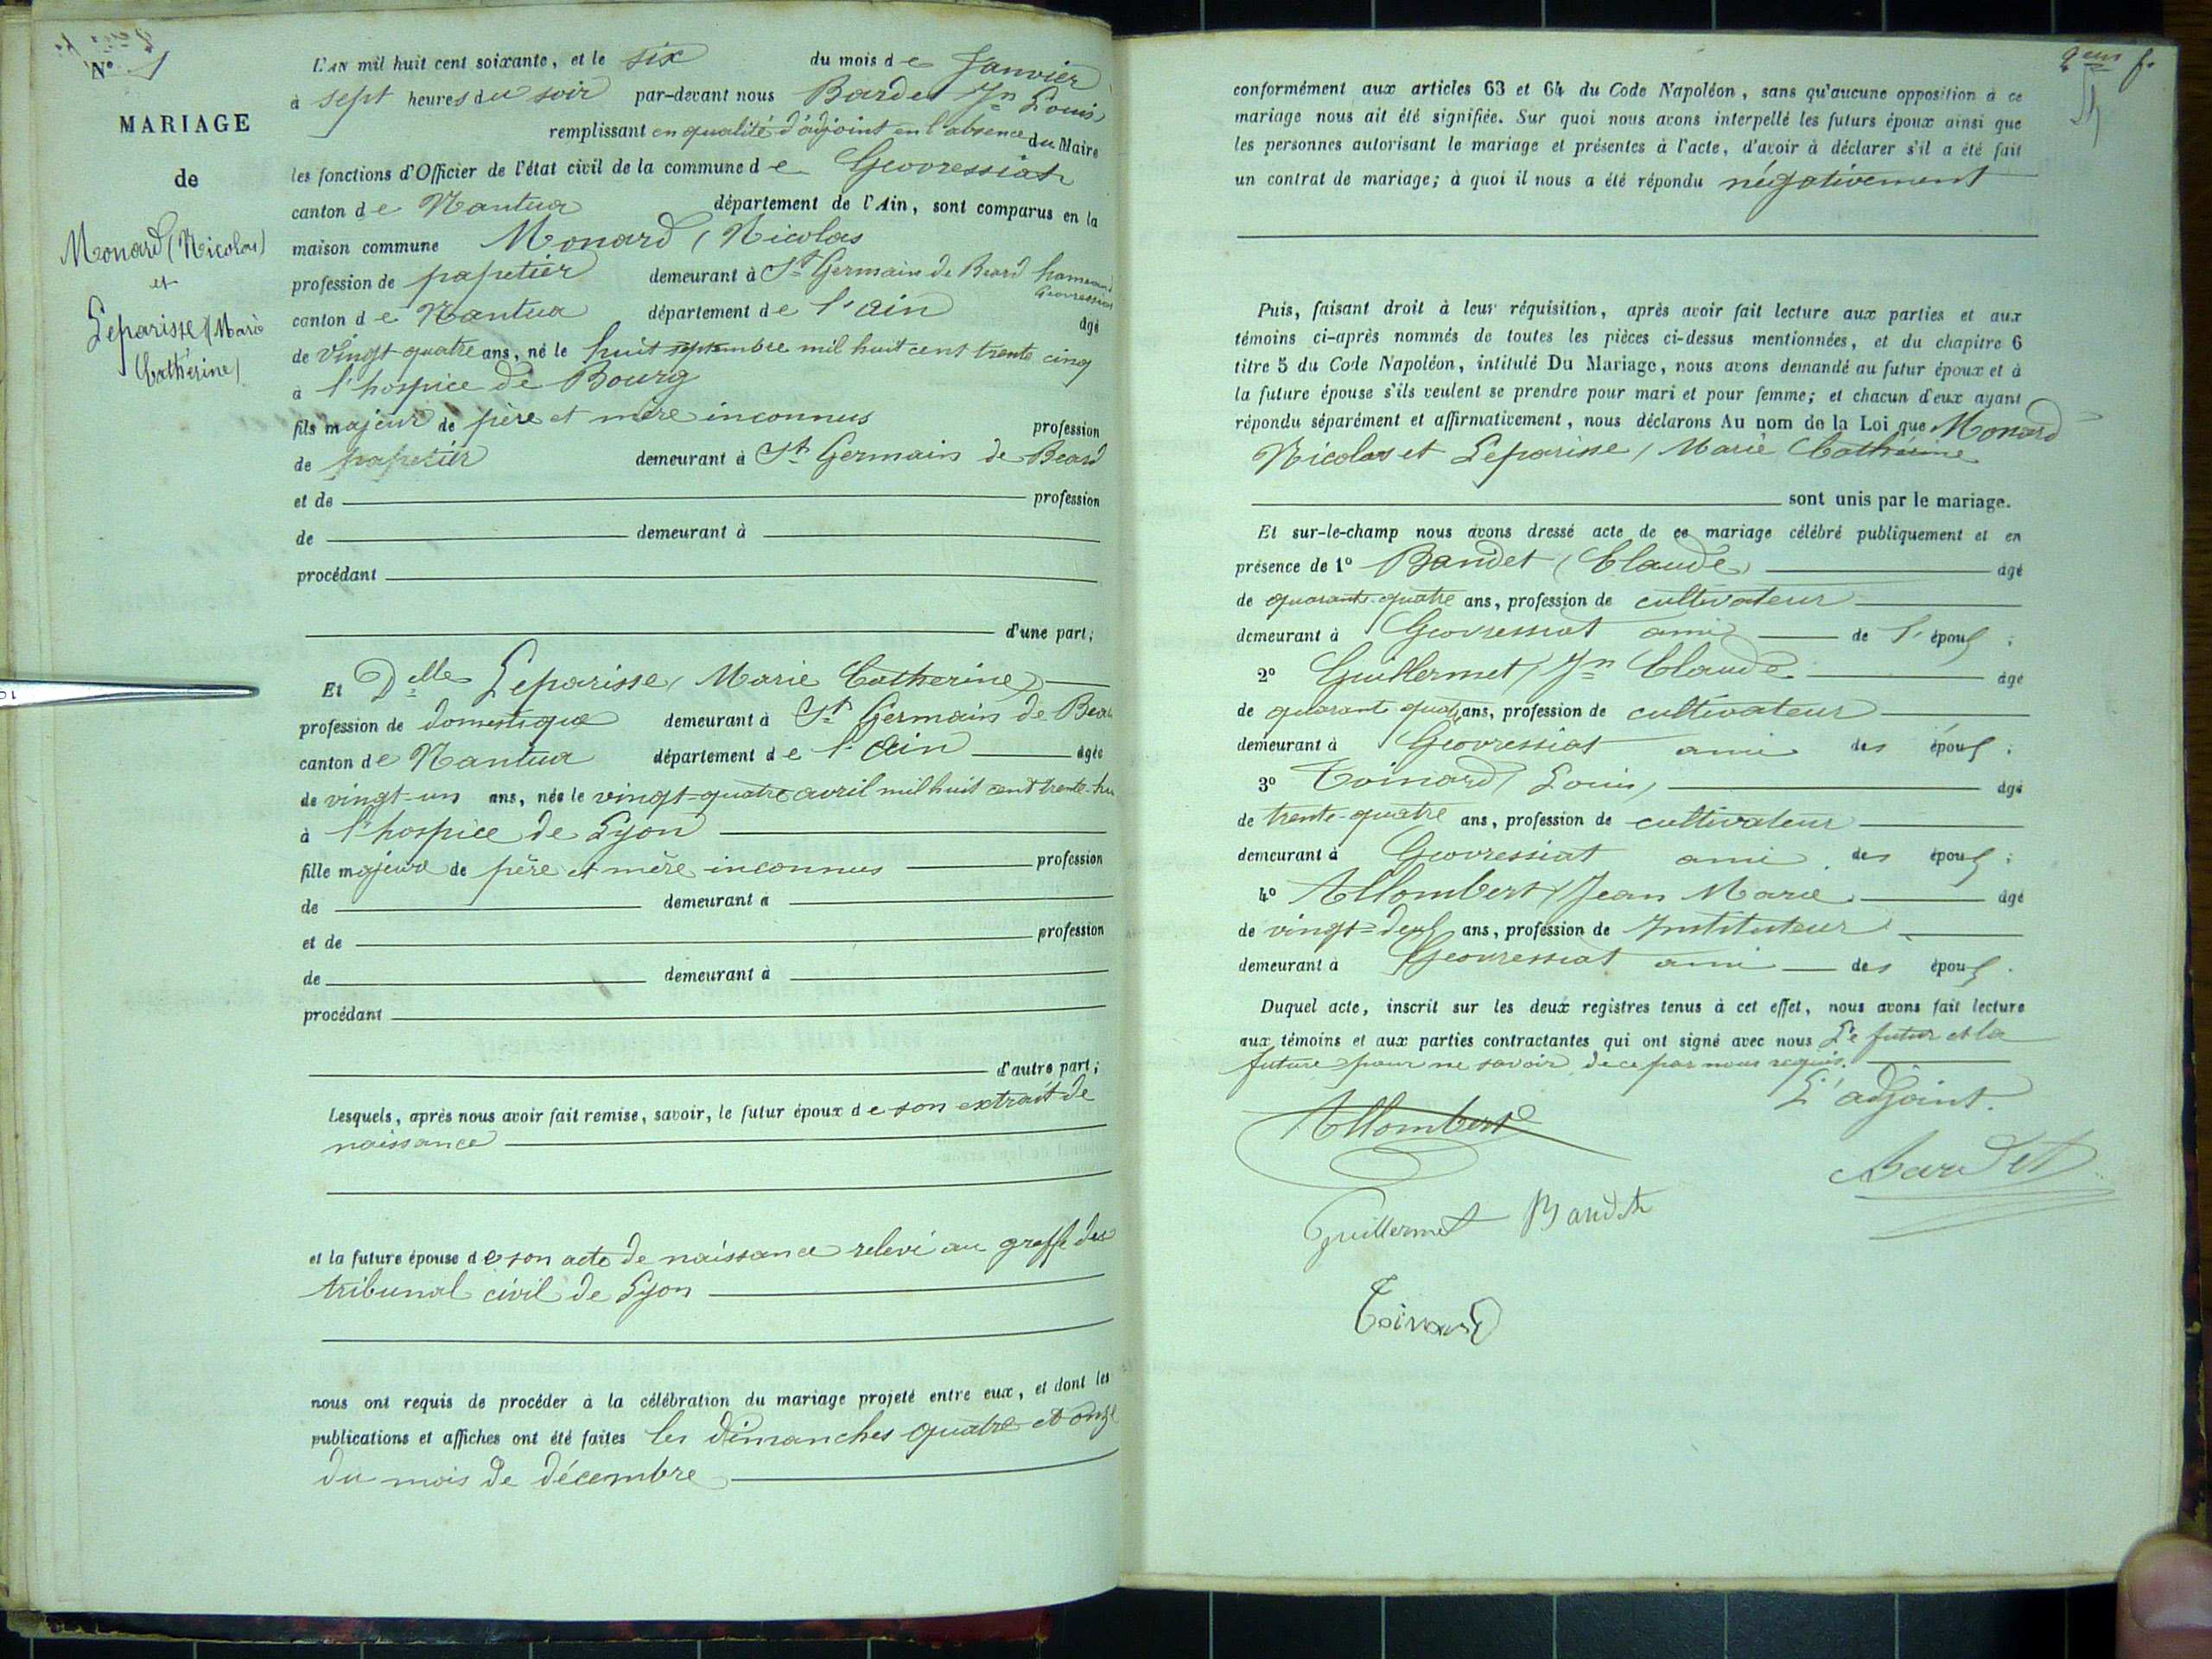 N° 1
MARIAGE
de
Monard (Nicolas)
et
Leparisse (Marie
Catherine)
L'AN mil huit cent soixante, et le six du mois de Janvier
à sept heures du soir par-devant nous Bardet Jn Louis
remplissant en qualité d'adjoint en l'absence du Maire
les fonctions d'Officier de l'état civil de la commune de Geovressiat
canton de Nantua département de l'Ain, sont comparus en la
maison commune Monard (Nicolas
profession de papetier demeurant à St Germain de Beard hameau
Geovressiat
canton de Nantua département de l'ain âgé
de vingt-quatre ans, né le huit septembre mil huit cent trente cinq
à l'hospice de Bourg
fils majeur de père et mère inconnus profession
de papetier demeurant à St Germain de Beard
et de profession
de demeurant à
procédant
d'une part;
Et Delle Leparisse (Marie Catherine)
profession de domestique demeurant à St Germain de Bear
canton de Nantua département de l'ain âgée
de vingt-un ans, née le vingt-quatre avril mil huit cent trente-hu
à l'hospice de Lyon
fille majeure de père et mère inconnus profession
de demeurant à
et de profession
de demeurant à
procédant
d'autre part;
Lesquels, après nous avoir fait remise, savoir, le futur époux de son extrait de
naissance
et la future épouse de son acte de naissance relevé au greffe du
tribunal civil de Lyon
nous ont requis de procéder à la célébration du mariage projeté entre eux, et dont les
publications et affiches ont été faites les dimanches quatre et onze
du mois de décembre
conformément aux articles 63 et 64 du Code Napoléon, sans qu'aucune opposition à ce
mariage nous ait été signifiée. Sur quoi nous avons interpellé les futurs époux ainsi que
les personnes autorisant le mariage et présentes à l'acte, d'avoir à déclarer s'il a été fait
un contrat de mariage; à quoi il nous a été répondu négativement
Puis, faisant droit à leur réquisition, après avoir fait lecture aux parties et aux
témoins ci-après nommés de toutes les pièces ci-dessus mentionnées, et du chapitre 6
titre 5 du Code Napoléon, intitulé Du Mariage, nous avons demandé au futur époux et à
la future épouse s'ils veulent se prendre pour mari et pour femme; et chacun d'eux ayant
répondu séparément et affirmativement, nous déclarons Au nom de la Loi que Monard
Nicolas et Leparisse, Marie Catherine
sont unis par le mariage.
Et sur-le-champ nous avons dressé acte de ce mariage célébré publiquement et en
présence de 1° Bandet (Claude) âgé
de quarant-quatre ans, profession de cultivateur
demeurant à Geovressiat ami de l' époux;
2° Guillermet, Jn Claude âgé
de quarant quatre ans, profession de cultivateur
demeurant à Geovressiat ami des époux;
3° Toinard (Louis) âgé
de trente-quatre ans, profession de cultivateur
demeurant à Geovressiat ami des époux;
4° Allombert (Jean Marie âgé
de vingt-deux ans, profession de Instituteur
demeurant à Geovressiat ami des époux.
Duquel acte, inscrit sur les deux registres tenus à cet effet, nous avons fait lecture
aux témoins et aux parties contractantes qui ont signé avec nous Le futur et la
future pour ne savoir de ce par nous requis.
L'adjoint.
Allombert
Bardet
Guillermet Bandet
Toinard